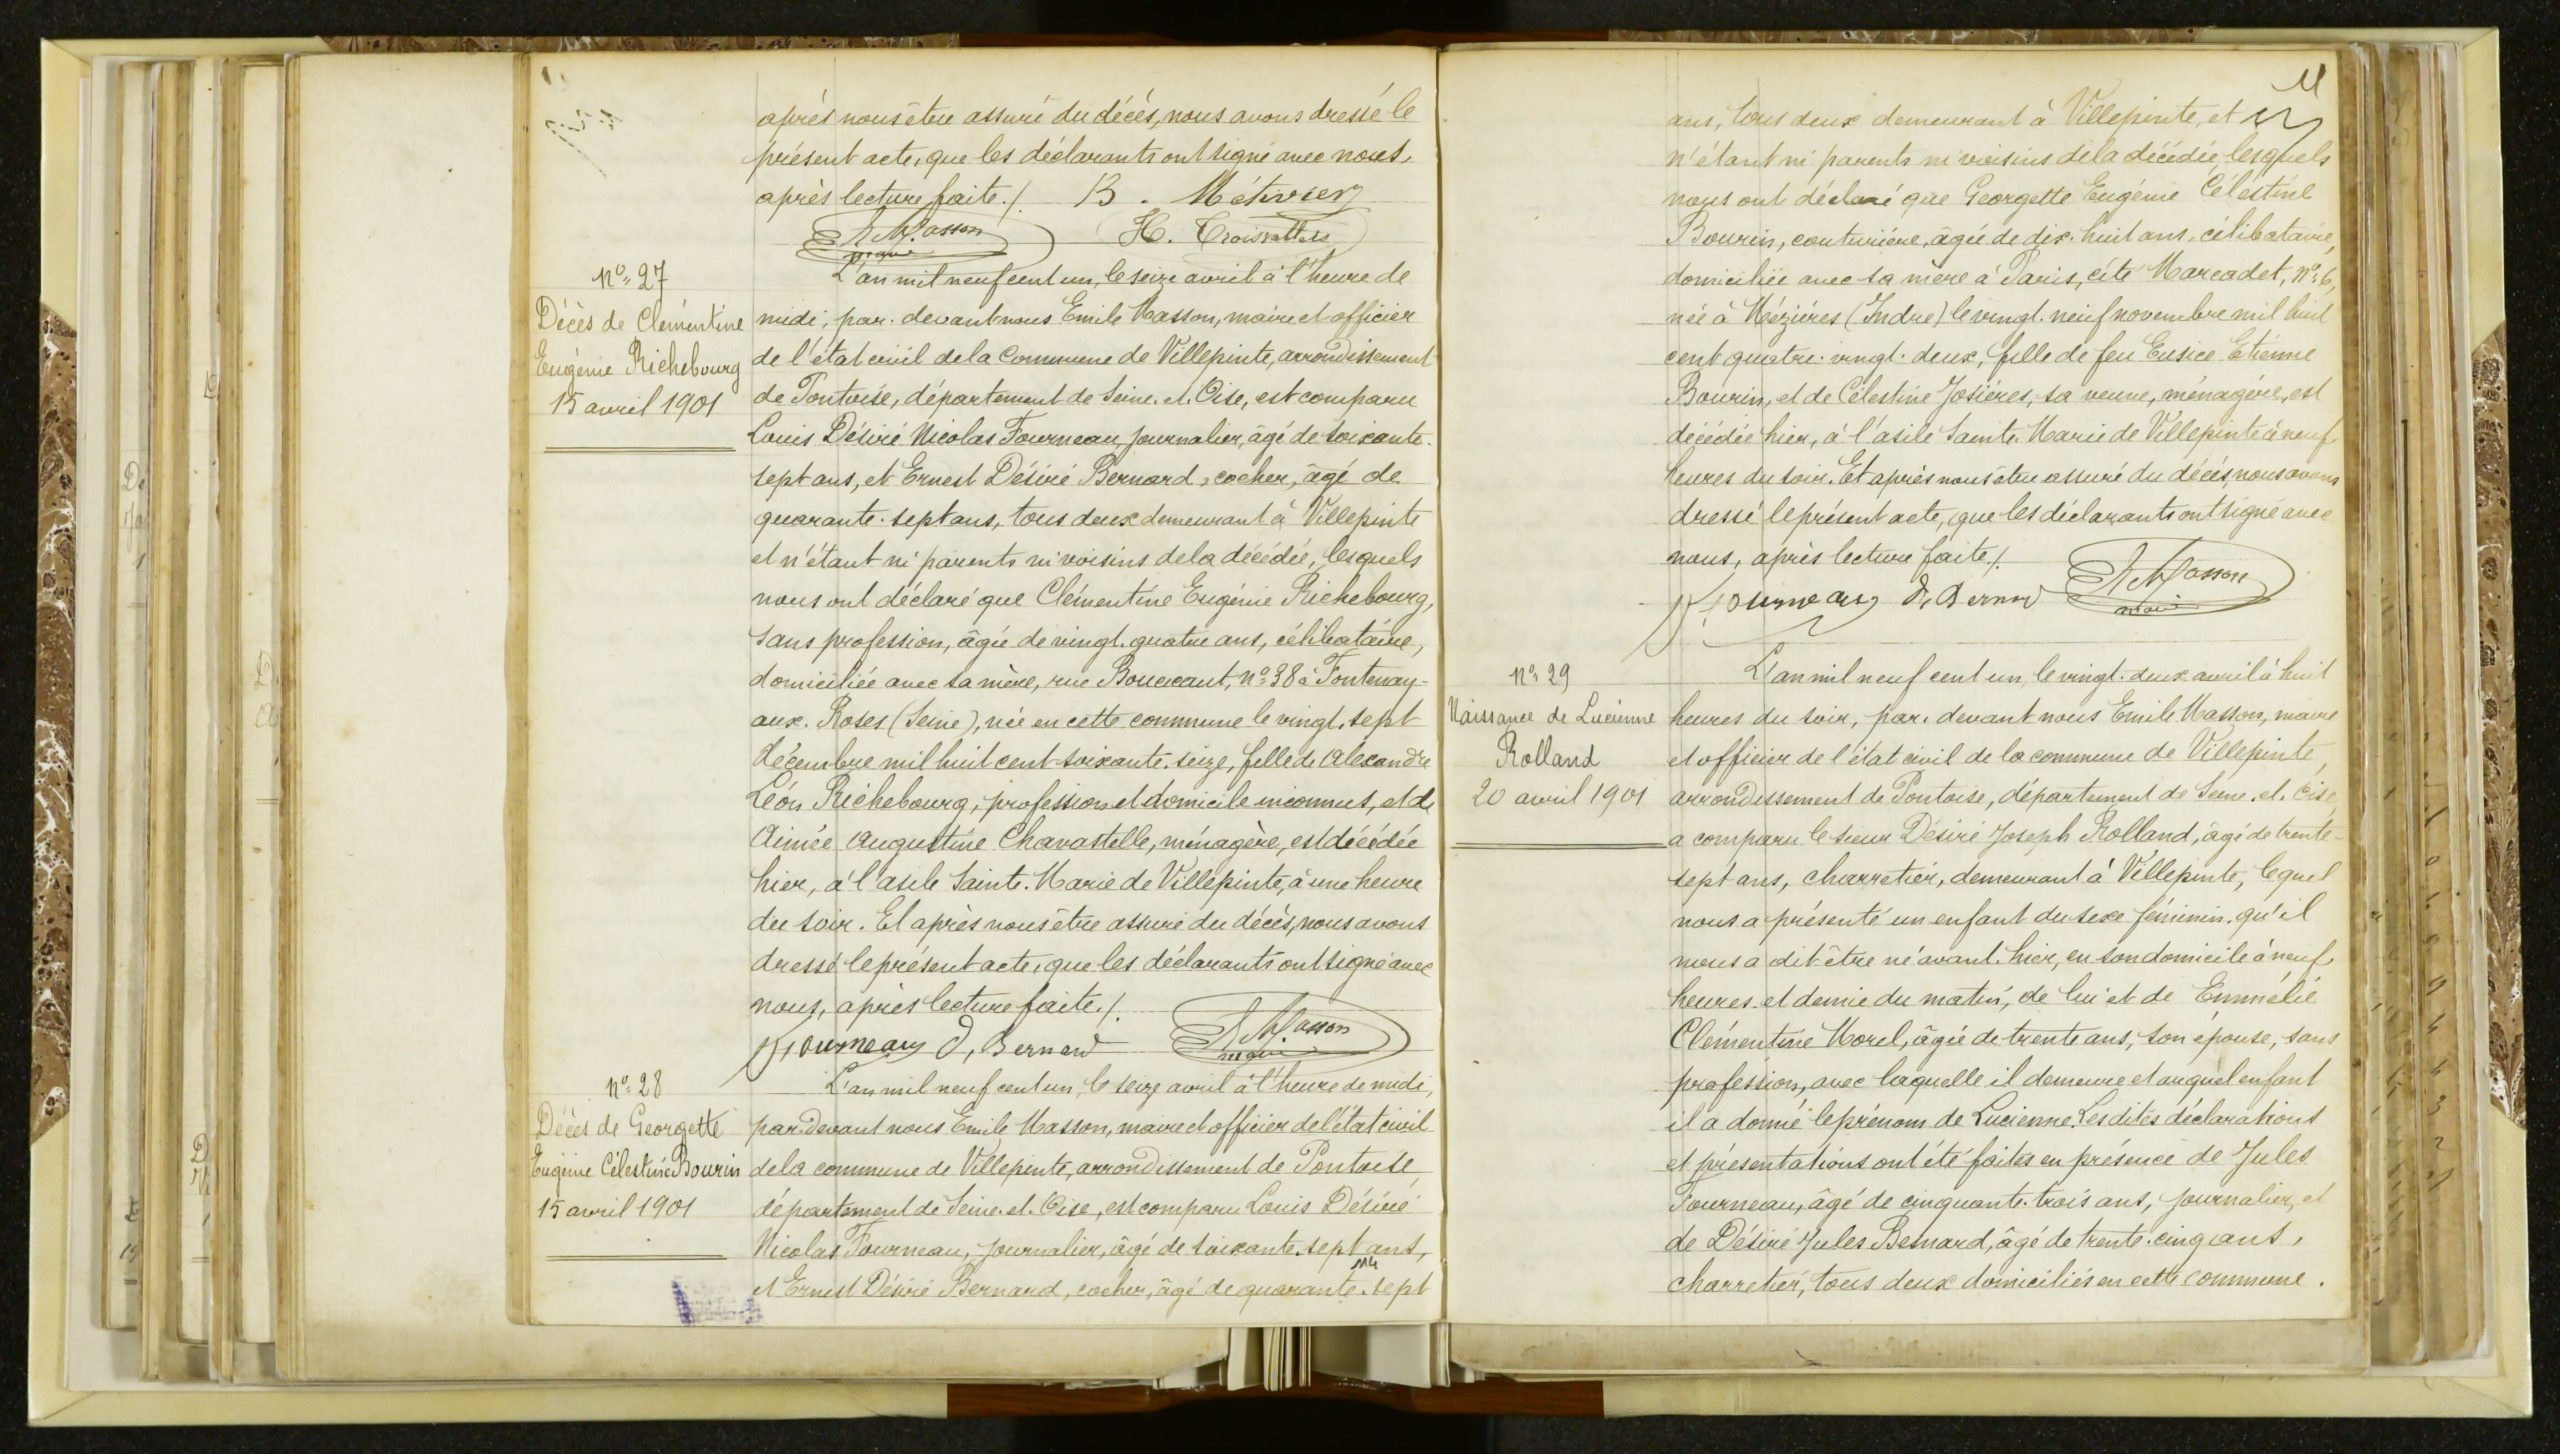 après nous être assuré du décès, nous avons dressé le
présent acte, que les déclarants ont signé avec nous,
après lecture faite ./. B. Métivier
E Masson H. Troisvallets
maire
No 27
Décès de Clémentine
Eugénie Richebourg
15 avril 1901
L'an mil neuf cent un, le seize avril à l'heure de
midi, par-devant nous Emile Masson, maire et officier
de l'état civil de la Commune de Villepinte, arrondissement
de Pontoise, département de Seine-et-Oise, est comparu
Louis Désiré Nicolas Fourneau, journalier, âgé de soixante-
sept ans, et Ernest Désiré Bernard, cocher, âgé de
quarante-sept ans, tous deux demeurant à Villepinte
et n'étant ni parents ni voisins de la décédée, lesquels
nous ont déclaré que Clémentine Eugénie Richebourg,
sans profession, âgée de vingt-quatre ans, célibataire,
domiciliée avec sa mère, rue Boucicaut, no 38 à Fontenay-
aux-Roses (Seine), née en cette commune le vingt-sept
décembre mil huit cent soixante-seize, fille de Alexandre
Léon Richebourg, profession et domicile inconnus, et de
Aimée Augustine Chavastelle, ménagère, est décédée
hier, à l'asile Sainte-Marie de Villepinte, à une heure
du soir. Et après nous être assuré du décès, nous avons
dressé le présent acte, que les déclarants ont signé avec
nous, après lecture faite ./.
Fourneau D, Bernard E Masson
maire
No 28
Décès de Georgette
Eugénie Célestine Bourin
15 avril 1901
L'an mil neuf cent un, le seize avril à l'heure de midi,
par-devant nous Emile Masson, maire et officier de l'état civil
de la commune de Villepinte, arrondissement de Pontoise,
département de Seine-et-Oise, est comparu Louis Désiré
Nicolas Fourneau, journalier, âgé de soixante-sept ans,
et Ernest Désiré Bernard, cocher, âgé de quarante-sept
11
ans, tous deux demeurant à Villepinte, et
n'étant ni parents ni voisins de la décédée, lesquels
nous ont déclaré que Georgette Eugénie Célestine
Bourin, couturière, âgée de dix-huit ans, célibataire,
domiciliée avec sa mère à Paris, cité Marcadet, no 6,
née à Mézières (Indre) le vingt-neuf novembre mil huit
cent quatre-vingt-deux, fille de feu Eusice Etienne
Bourin, et de Célestine Josières, sa veuve, ménagère, est
décédée hier, à l'asile Sainte-Marie de Villepinte à neuf
heures du soir. Et après nous être assuré du décès, nous avons
dressé le présent acte, que les déclarants ont signé avec
nous, après lecture faite ./.
Fourneau D, Bernard E Masson
maire
No 29
Naissance de Lucienne
Rolland
20 avril 1901
L'an mil neuf cent un, le vingt-deux avril à huit
heures du soir, par-devant nous Emile Masson, maire
et officier de l'état civil de la commune de Villepinte,
arrondissement de Pontoise, département de Seine-et-Oise
a comparu le sieur Désiré Joseph Rolland, âgé de trente-
sept ans, charretier, demeurant à Villepinte, lequel
nous a présenté un enfant du sexe féminin, qu'il
nous a dit être né avant-hier, en son domicile à neuf
heures et demie du matin, de lui et de Emmélie
Clémentine Morel, âgée de trente ans, son épouse, sans
profession, avec laquelle il demeure et auquel enfant
il a donné le prénom de Lucienne. Les dites déclarations
et présentations ont été faites en présence de Jules
Fourneau, âgé de cinquante-trois ans, journalier, et
de Désiré Jules Besnard, âgé de trente-cinq ans,
charretier, tous deux domiciliés en cette commune.